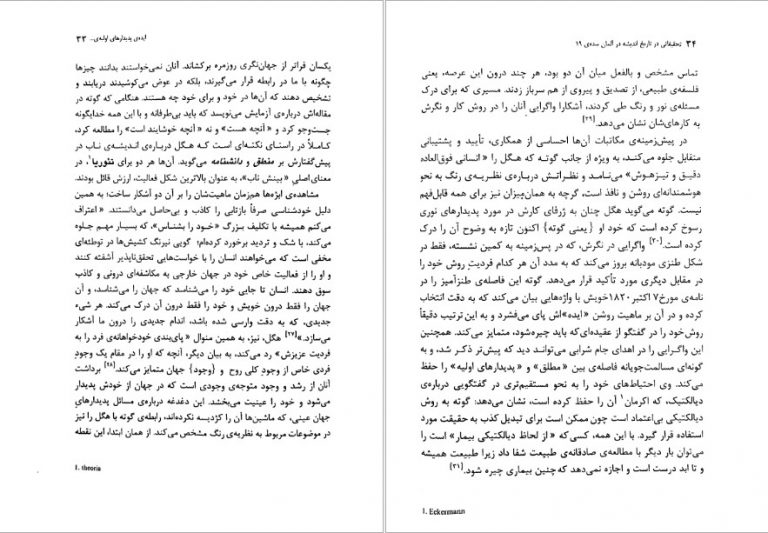 ایده‌ی پدیدارهای اولیه‌ی... ۳۳
یکسان فراتر از جهان‌نگری روزمره برکشاند. آنان نمی‌خواستند بدانند چیزها
چگونه با ما در رابطه قرار می‌گیرند، بلکه در عوض می‌کوشیدند دریابند و
تشخیص دهند که آن‌ها در خود و برای خود چه هستند. هنگامی که گوته در
مقاله‌اش درباره‌ی آزمایش می‌نویسد که باید بی‌طرفانه و با این همه خداگونه
جست‌وجو کرد و «آنچه هست» و نه «آنچه خوشایند است» را مطالعه کرد،
کاملاً در راستای نکته‌ای است که هگل درباره‌ی اندیشه‌ی ناب در
پیش‌گفتارش بر منطق و دانشنامه می‌گوید. آن‌ها هر دو برای تئوریا۱، در
معنای اصلیِ «بینش ناب»، به عنوان بالاترین شکل فعالیت، ارزش قائل بودند.
مشاهده‌ی ابژه‌ها هم‌زمان ماهیت‌شان را بر آن دو آشکار ساخت؛ به همین
دلیل خودشناسی صرفاً بازتابی را کاذب و بی‌حاصل می‌دانستند. «اعتراف
می‌کنم همیشه با تکلیف بزرگ «خود را بشناس»، که بسیار مهم جلوه
می‌کند، با شک و تردید برخورد کرده‌ام؛ گویی نیرنگ کشیش‌ها در توطئه‌ای
مخفی است که می‌خواهند انسان را با خواست‌هایی تحقق‌ناپذیر آشفته کنند
و او را از فعالیت خاص خود در جهان خارجی به مکاشفه‌ای درونی و کاذب
سوق دهند. انسان تا جایی خود را می‌شناسد که جهان را می‌شناسد، و آن
جهان را فقط درون خویش و خود را فقط درون آن درک می‌کند. هر شیء
جدیدی، که به دقت وارسی شده باشد، اندام جدیدی را درون ما آشکار
می‌سازد.»[۲۷] هگل، نیز، به همین منوال «پای‌بندی خودخواهانه‌ی فرد را به
فردیت عزیزش» رد می‌کند، به بیان دیگر، آنچه که او را در مقام یک وجودِ
فردی خاص از وجودِ کلی روح و {وجود} جهان متمایز می‌کند.[۲۸] برداشت
آنان از رشد و وجود متوجه‌ی وجودی است که در جهان از خودش پدیدار
می‌شود و خود را عینیت می‌بخشد. این دغدغه درباره‌ی مسائل پدیدارهای
جهان عینی، که ماشین‌ها آن را کژدیسه نکرده‌اند، رابطه‌ی گوته با هگل را نیز
در موضوعات مربوط به نظریه‌ی رنگ مشخص می‌کند. از همان ابتدا، این نقطه
1. theoria
۳۴ تحقیقاتی در تاریخ اندیشه در آلمان سده‌ی ۱۹
تماس مشخص و بالفعل میان آن دو بود، هر چند درون این عرصه، یعنی
فلسفه‌ی طبیعی، از تصدیق و پیروی از هم سرباز زدند. مسیری که برای درک
مسئله‌ی نور و رنگ طی کردند، آشکارا واگرایی آنان را در روش کار و نگرش
به کارهای‌شان نشان می‌دهد.[۲۹]
در پیش‌زمینه‌ی مکاتبات آن‌ها احساسی از همکاری، تأیید و پشتیبانی
متقابل جلوه می‌کند، به ویژه از جانب گوته که هگل را «انسانی فوق‌العاده
دقیق و تیزهوش» می‌نامد و نظراتش درباره‌ی نظریه‌ی رنگ به نحو
هوشمندانه‌ای روشن و نافذ است، گرچه به همان‌میزان نیز برای همه قابل‌فهم
نیست. گوته می‌گوید هگل چنان به ژرفای کارش در مورد پدیدارهای نوری
رسوخ کرده است که خود او {یعنی گوته} اکنون تازه به وضوح آن را درک
کرده است.[۳۰] واگرایی در نگرش، که در پس‌زمینه به کمین نشسته، فقط در
شکل طنزی مودبانه بروز می‌کند که به مدد آن هر کدام فردیتِ روش خود را
در مقابل دیگری مورد تأکید قرار می‌دهد. گوته این فاصله‌ی طنزآمیز را در
نامه‌ی مورخ ۷ اکتبر ۱۸۲۰خویش با واژه‌هایی بیان می‌کند که به دقت انتخاب
کرده و در آن بر ماهیت روشن «ایده»اش پای می‌فشرد و به این ترتیب دقیقاً
روش‌خود را در گفتگو از عقیده‌ای‌که باید چیره‌شود، متمایز می‌کند. همچنین
این واگرایی را در اهدای جام شرابی می‌توانند دید که پیش‌تر ذکر شد، و به
گونه‌ای مسالمت‌جویانه فاصله‌ی بین «مطلق» و «پدیدارهای اولیه» را حفظ
می‌کند. وی احتیاط‌های خود را به نحو مستقیم‌تری در گفتگویی درباره‌ی
دیالکتیک، که اکرمان۱ آن را حفظ کرده است، نشان می‌دهد: گوته به روش
دیالکتیکی بی‌اعتماد است چون ممکن است برای تبدیل کذب به حقیقت مورد
استفاده قرار گیرد. با این همه، کسی‌که «از لحاظ دیالکتیکی بیمار» است را
می‌توان بار دیگر با مطالعه‌ی صادقانه‌ی طبیعت شفا داد زیرا طبیعت همیشه
و تا ابد درست است و اجازه نمی‌دهد که‌چنین بیماری چیره شود.[۳۱]
1. Eckermann